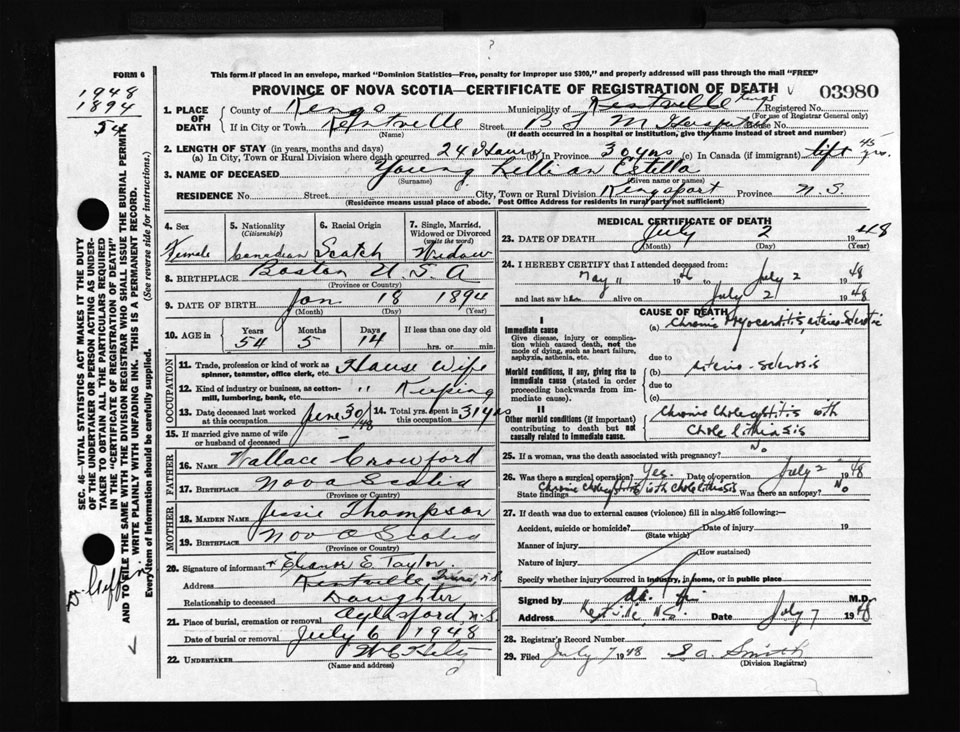 FORM 6
1948
1894
54
This form if placed in an envelope, marked "Dominion Statistics—Free, penalty for improper use $300," and properly addressed will pass through the mail "FREE"
PROVINCE OF NOVA SCOTIA—CERTIFICATE OF REGISTRATION OF DEATH
03980
1. PLACE OF DEATH
County of Kings
Municipality of Kentville Kings
Registered No.
(For use of Registrar General only)
If in City or Town Kentville Street B F M Hospital House No.
(Name) (If death occurred in a hospital or institution, give the name instead of street and number)
2. LENGTH OF STAY (in years, months and days)
(a) In City, Town or Rural Division where death occurred 24 Hours (b) In Province 30 yrs (c) In Canada (if immigrant) life 45 yrs.
3. NAME OF DECEASED Young Lillian Estella
(Surname) (Given name or names)
RESIDENCE No. Street City, Town or Rural Division Kingsport Province N.S.
(Residence means usual place of abode. Post Office Address for residents in rural parts not sufficient)
4. Sex
Female
5. Nationality
(Citizenship)
Canadian
6. Racial Origin
Scotch
7. Single, Married, Widowed or Divorced
(write the word)
Widow
8. BIRTHPLACE Boston U.S.A
(Province or Country)
9. DATE OF BIRTH Jan 18 1894
(Month) (Day) (Year)
10. AGE in Years Months Days If less than one day old
54 5 14 hrs. or min.
OCCUPATION
11. Trade, profession or kind of work as spinner, teamster, office clerk, etc. House Wife
12. Kind of industry or business, as cotton-mill, lumbering, bank, etc. " Keeping
13. Date deceased last worked at this occupation June 30/48
14. Total yrs. spent in this occupation 31 yrs
15. If married give name of wife or husband of deceased –
FATHER
16. NAME Wallace Crowford
17. BIRTHPLACE Nova Scotia
(Province or Country)
MOTHER
18. MAIDEN NAME Jessie Thompson
19. BIRTHPLACE Nova Scotia
(Province or Country)
20. Signature of informant Eleanor E. Taylor.
Address Kentville N.S.
Relationship to deceased Daughter
21. Place of burial, cremation or removal Aylesford N.S.
Date of burial or removal July 6 1948
22. UNDERTAKER
(Name and address)
MEDICAL CERTIFICATE OF DEATH
23. DATE OF DEATH July 2 1948
(Month) (Day) (Year)
24. I HEREBY CERTIFY that I attended deceased from:
May 11 1946 to July 2 1948
and last saw her alive on July 2 1948
CAUSE OF DEATH
I
Immediate cause
Give disease, injury or complication which caused death, not the mode of dying, such as heart failure, asphyxia, asthenia, etc.
(a) Chronic Myocarditis arterio-Sclerotic
due to
Morbid conditions, if any, giving rise to immediate cause (stated in order proceeding backwards from immediate cause).
(b) arterio-sclerosis
due to
(c)
II
Other morbid conditions (if important) contributing to death but not causally related to immediate cause.
Chronic Cholecystitis with
Cholelithiasis
25. If a woman, was the death associated with pregnancy? No
26. Was there a surgical operation? Yes. Date of operation July 2 1948
State findings Chronic cholecystitis with cholelithiasis Was there an autopsy? No
27. If death was due to external causes (violence) fill in also the following:—
Accident, suicide or homicide? Date of injury 19
(State which)
Manner of injury
(How sustained)
Nature of injury
Specify whether injury occurred in industry, in home, or in public place
Signed by M.D.
Address Kentville, N.S. Date July 7 1948
28. Registrar's Record Number
29. Filed July 7 1948 S. A. Smith
(Division Registrar)
SEC. 46—VITAL STATISTICS ACT MAKES IT THE DUTY
OF THE UNDERTAKER OR PERSON ACTING AS UNDER-
TAKER TO OBTAIN ALL THE PARTICULARS REQUIRED
IN THE "CERTIFICATE OF REGISTRATION OF DEATH"
AND TO FILE THE SAME WITH THE DIVISION REGISTRAR WHO SHALL ISSUE THE BURIAL PERMIT.
WRITE PLAINLY WITH UNFADING INK. THIS IS A PERMANENT RECORD.
Every item of information should be carefully supplied. (See reverse side for instructions.)